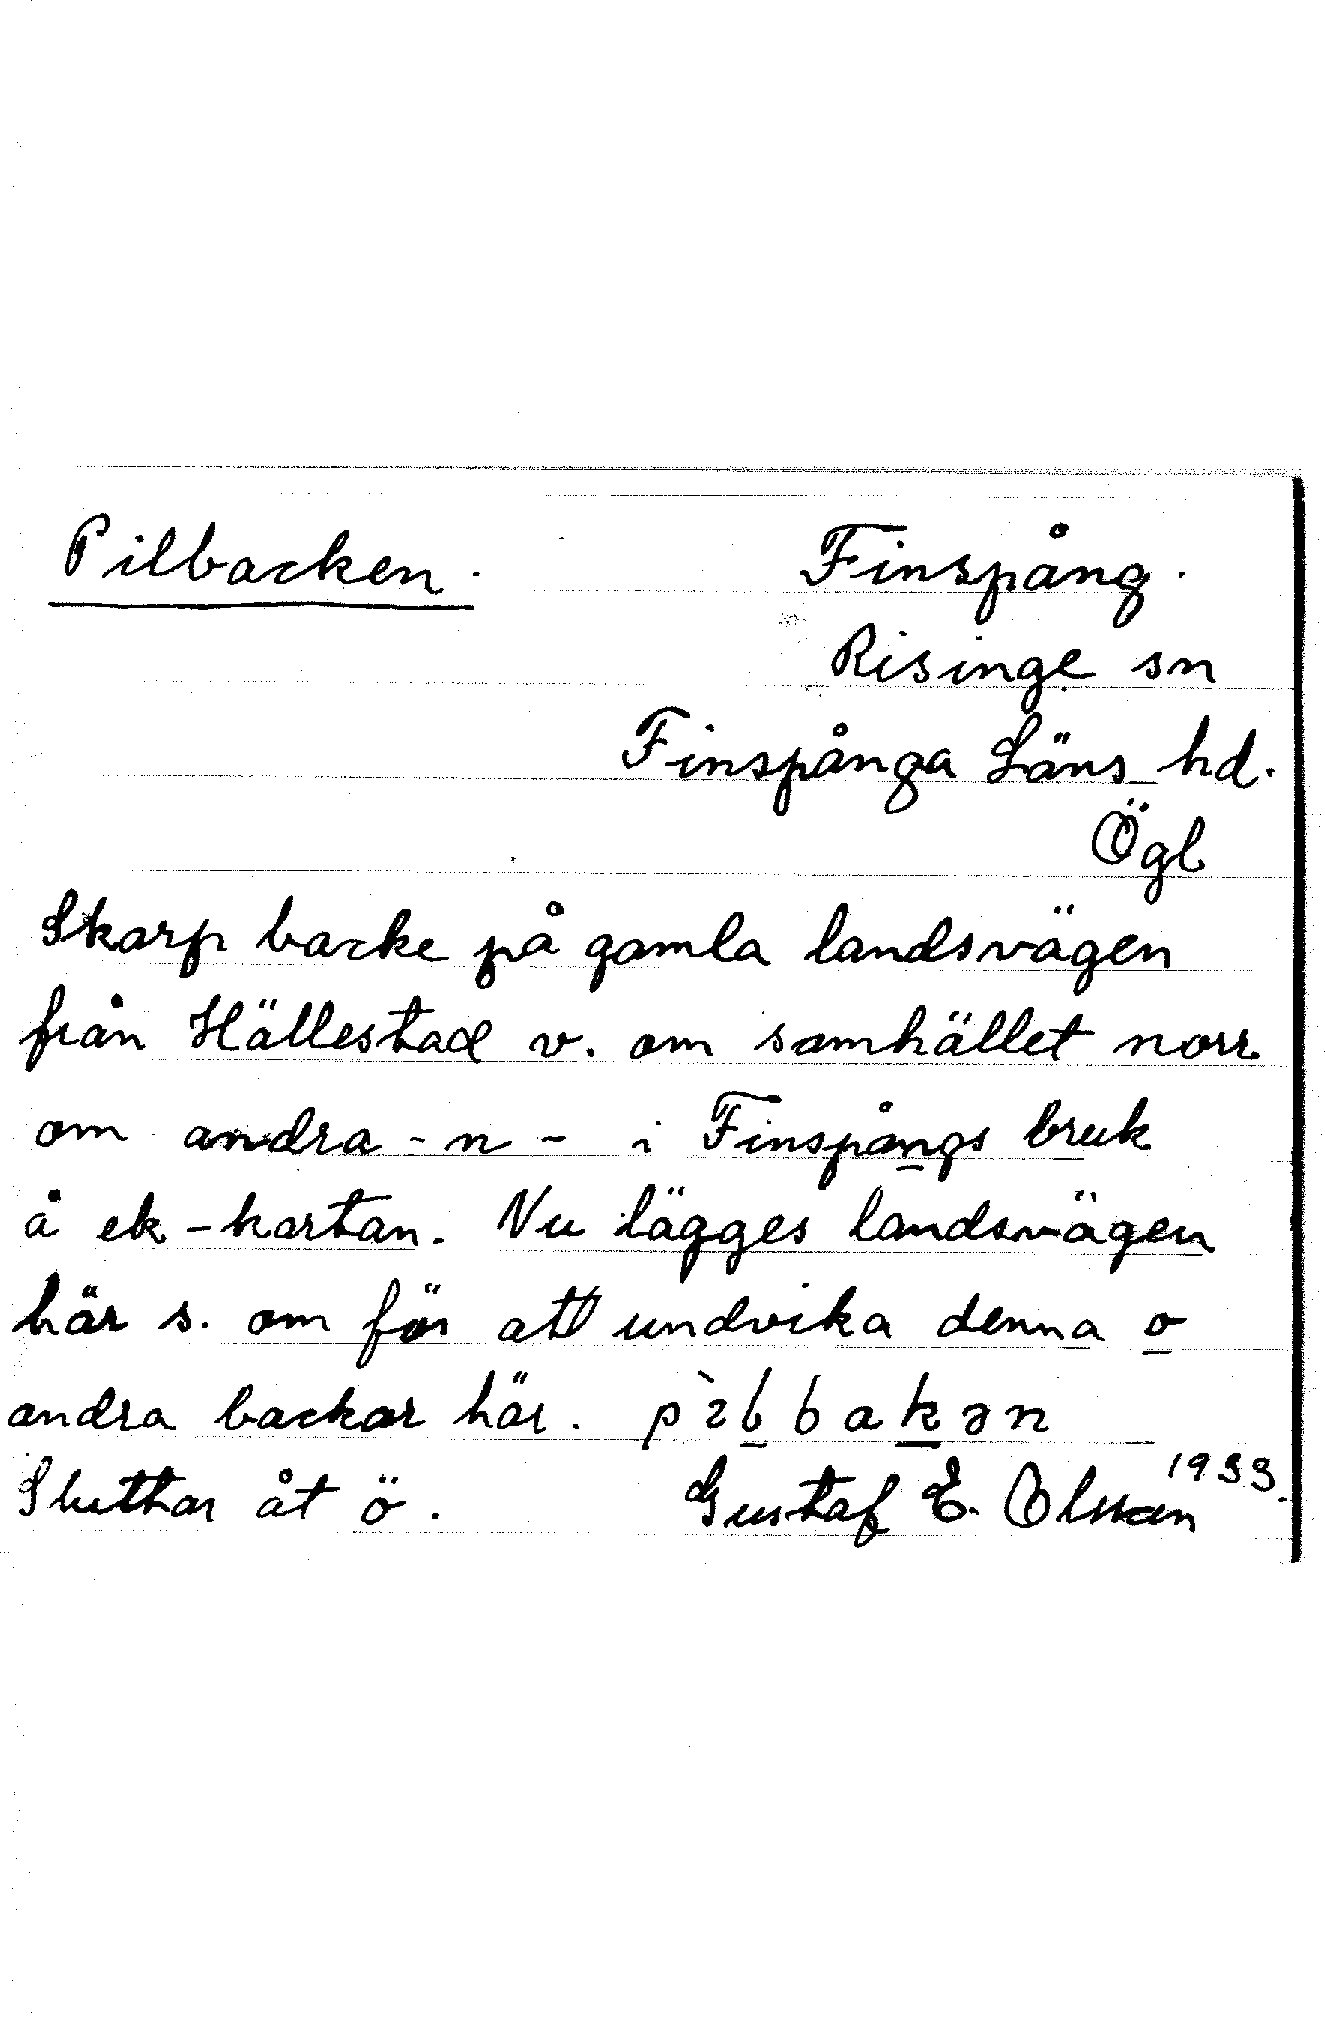 Pilbacken. Finspång.
Risinge sn
Finspånga Läns hd.
Ögl
Skarp backe på gamla landsvägen
från Hällestad v. om samhället norr
om andra -n- i Finspångs bruk
å ek-kartan. Nu lägges landsvägen
här s. om för att undvika denna o
andra backar här. pìlbakən
Sluttar åt ö. Gustaf E. Olsson 1933.